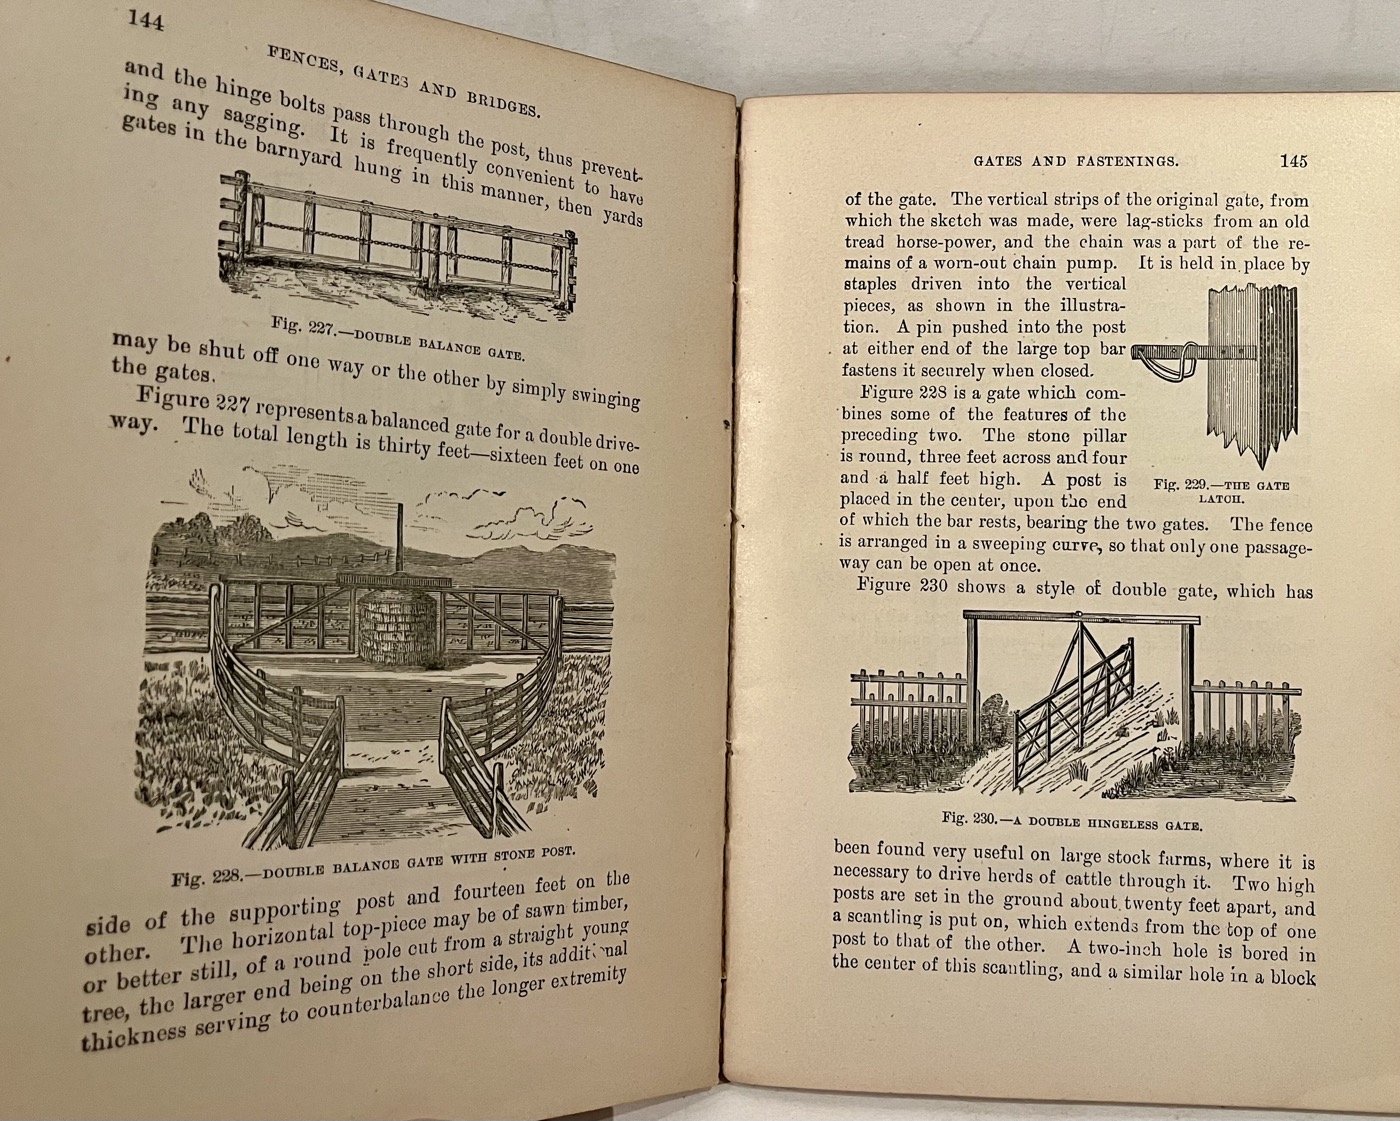 144
FENCES, GATES AND BRIDGES.
and the hinge bolts pass through the post, thus prevent-
ing any sagging. It is frequently convenient to have
gates in the barnyard hung in this manner, then yards
Fig. 227.—DOUBLE BALANCE GATE.
may be shut off one way or the other by simply swinging
the gates.
Figure 227 represents a balanced gate for a double drive-
way. The total length is thirty feet—sixteen feet on one
Fig. 228.—DOUBLE BALANCE GATE WITH STONE POST.
side of the supporting post and fourteen feet on the
other. The horizontal top-piece may be of sawn timber,
or better still, of a round pole cut from a straight young
tree, the larger end being on the short side, its additional
thickness serving to counterbalance the longer extremity
GATES AND FASTENINGS. 145
of the gate. The vertical strips of the original gate, from
which the sketch was made, were lag-sticks from an old
tread horse-power, and the chain was a part of the re-
mains of a worn-out chain pump. It is held in place by
staples driven into the vertical
pieces, as shown in the illustra-
tion. A pin pushed into the post
at either end of the large top bar
fastens it securely when closed.
Figure 228 is a gate which com-
bines some of the features of the
preceding two. The stone pillar
is round, three feet across and four
and a half feet high. A post is
placed in the center, upon the end
Fig. 229.—THE GATE
LATCH.
of which the bar rests, bearing the two gates. The fence
is arranged in a sweeping curve, so that only one passage-
way can be open at once.
Figure 230 shows a style of double gate, which has
Fig. 230.—A DOUBLE HINGELESS GATE.
been found very useful on large stock farms, where it is
necessary to drive herds of cattle through it. Two high
posts are set in the ground about twenty feet apart, and
a scantling is put on, which extends from the top of one
post to that of the other. A two-inch hole is bored in
the center of this scantling, and a similar hole in a block